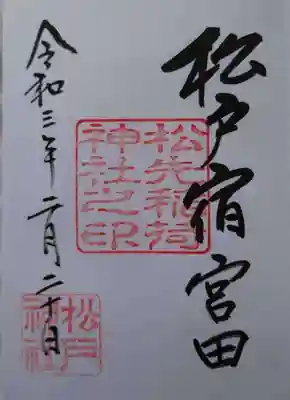 松戸宿 宮田
松先稲荷
神社之印
令和三年 二月 二十日
松戸
神社